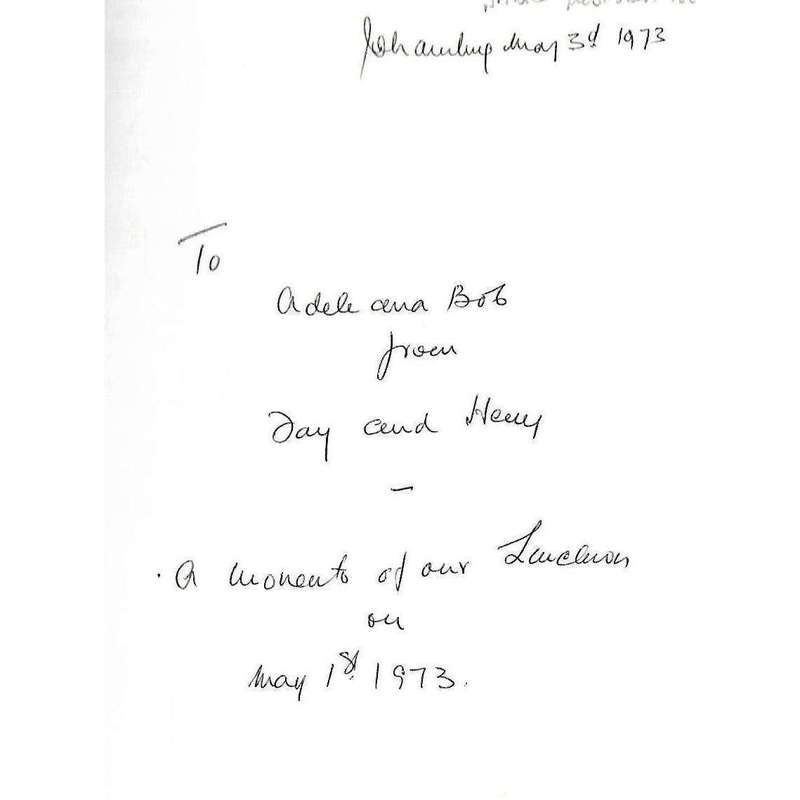 May 3d 1973
To
Adele and Bob
from
Jay and Henry
—
. A momento of our Luncheon
on
May 1st 1973.